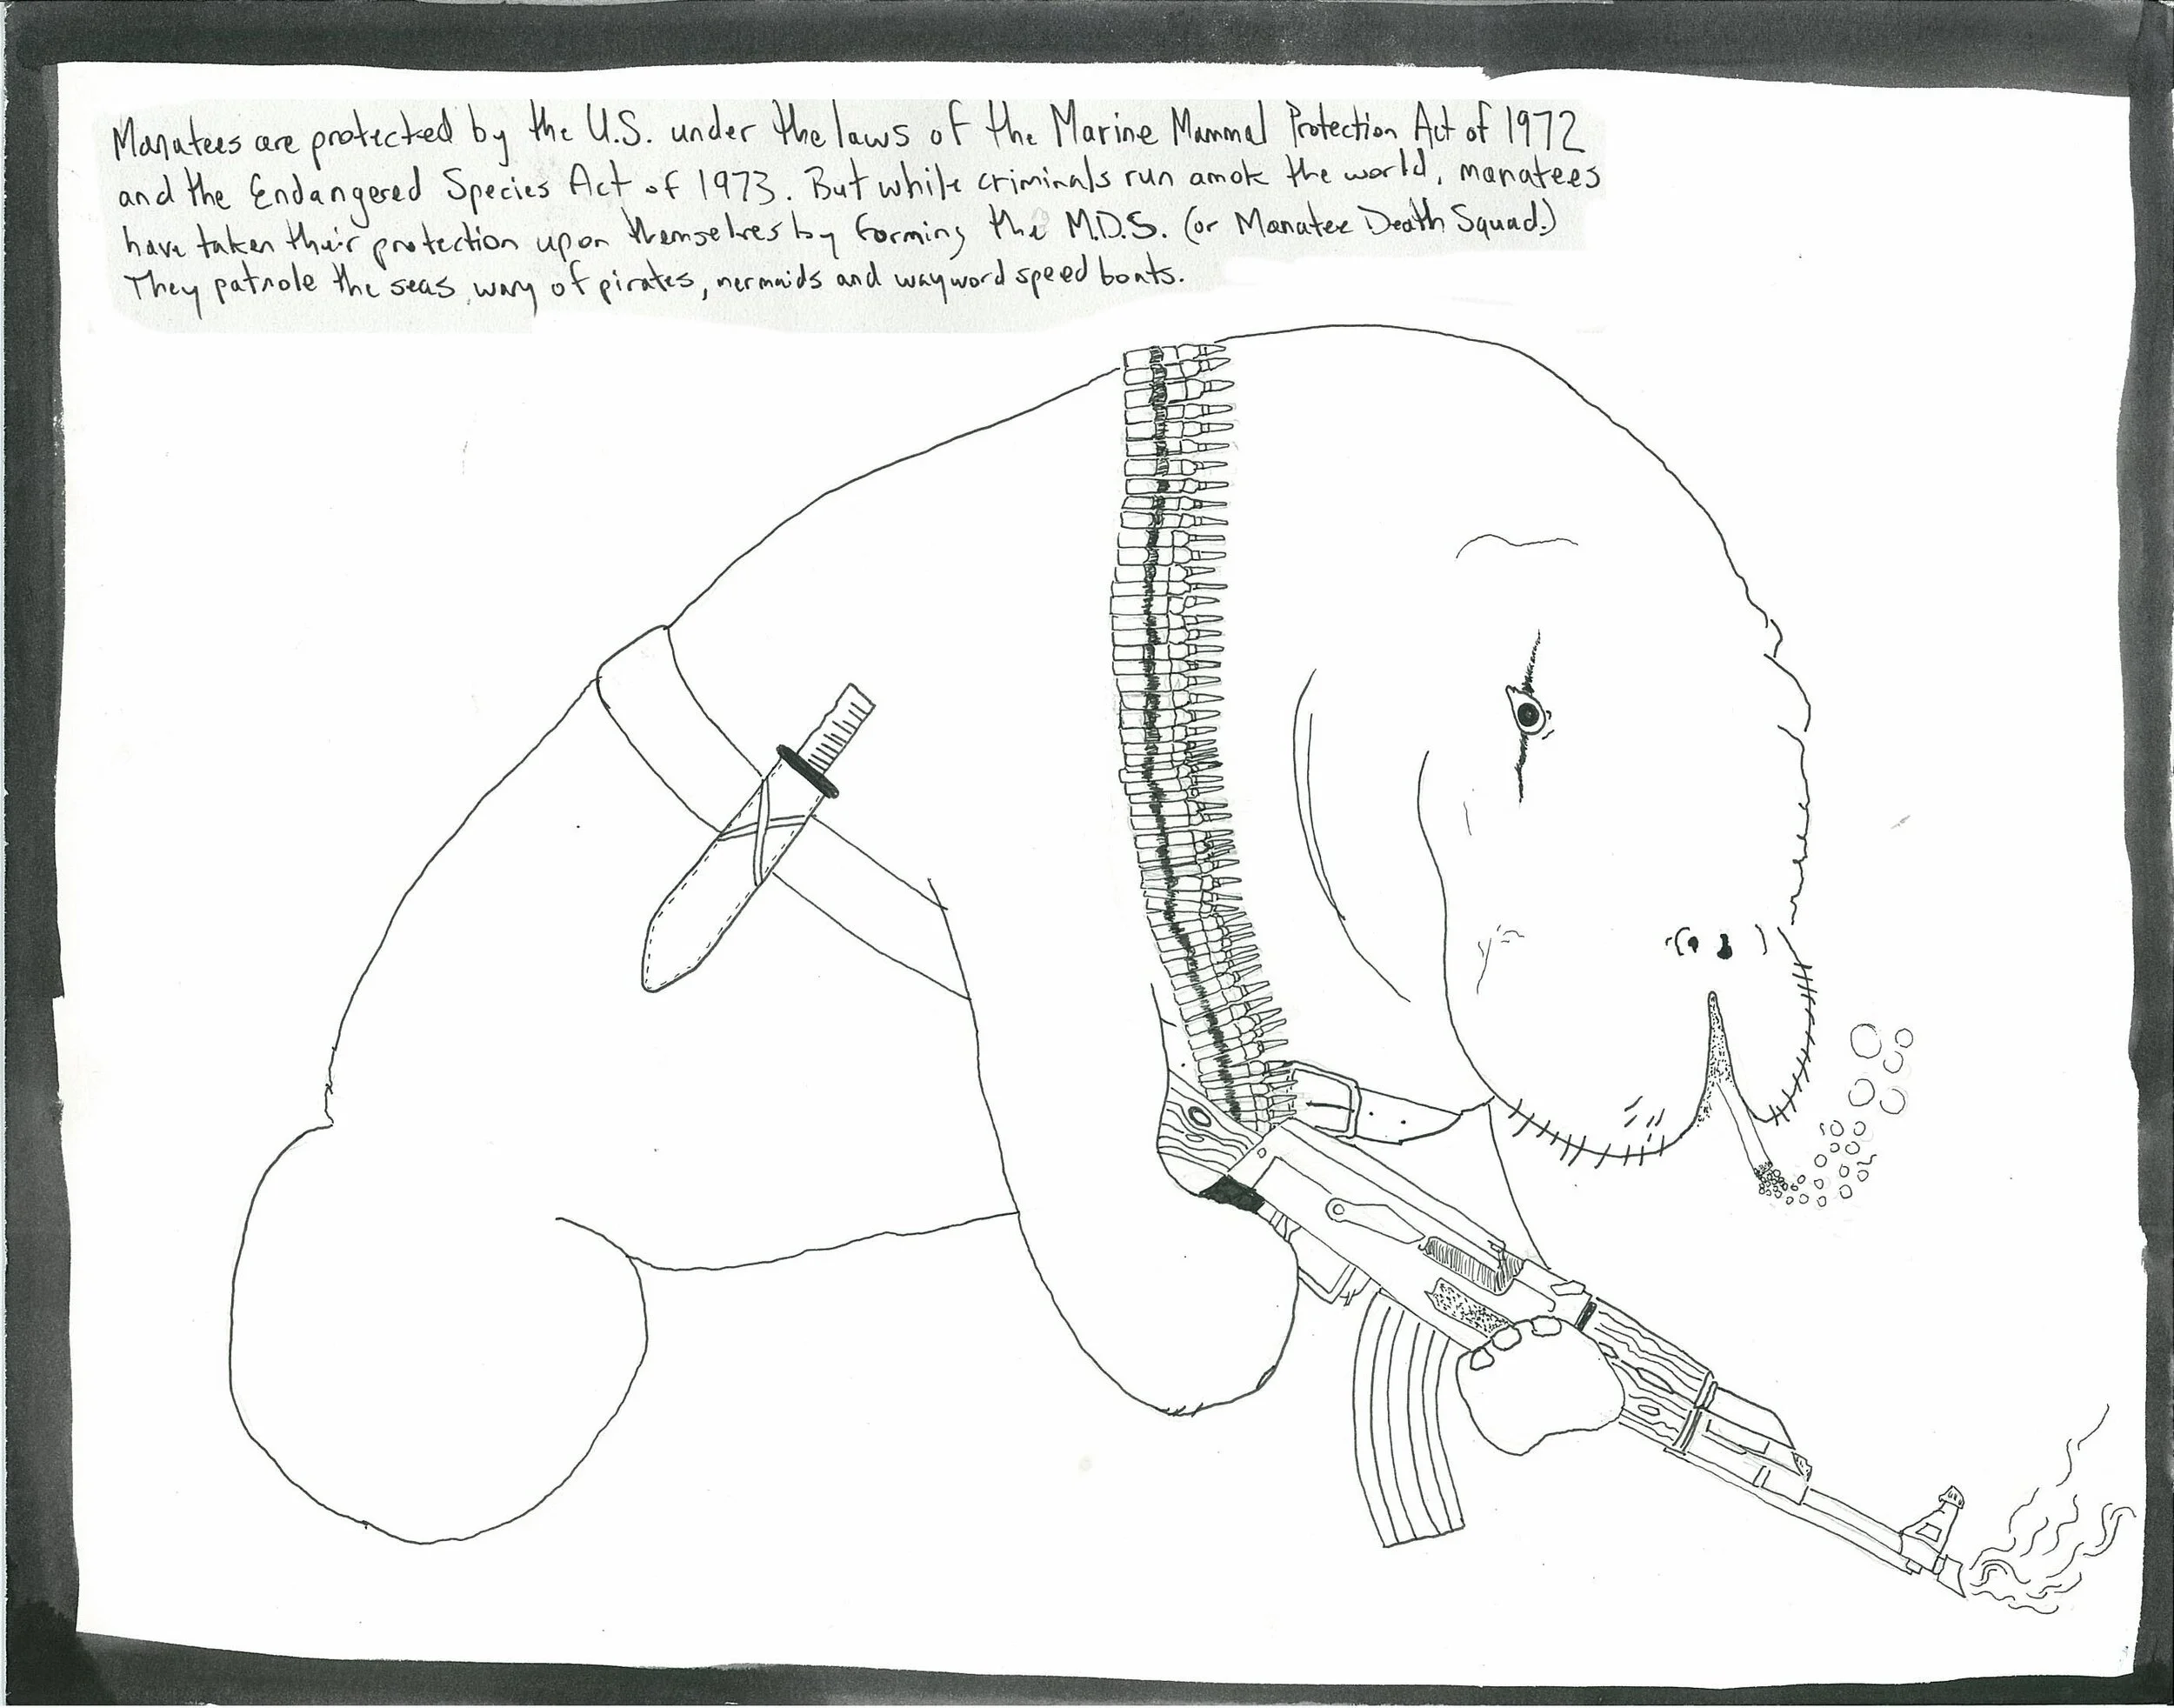 Manatees are protected by the U.S. under the laws of the Marine Mammal Protection Act of 1972
and the Endangered Species Act of 1973. But while criminals run amok the world, manatees
have taken their protection upon themselves by forming the M.D.S. (or Manatee Death Squad.)
They patrole the seas, wary of pirates, mermaids and wayword speed boats.